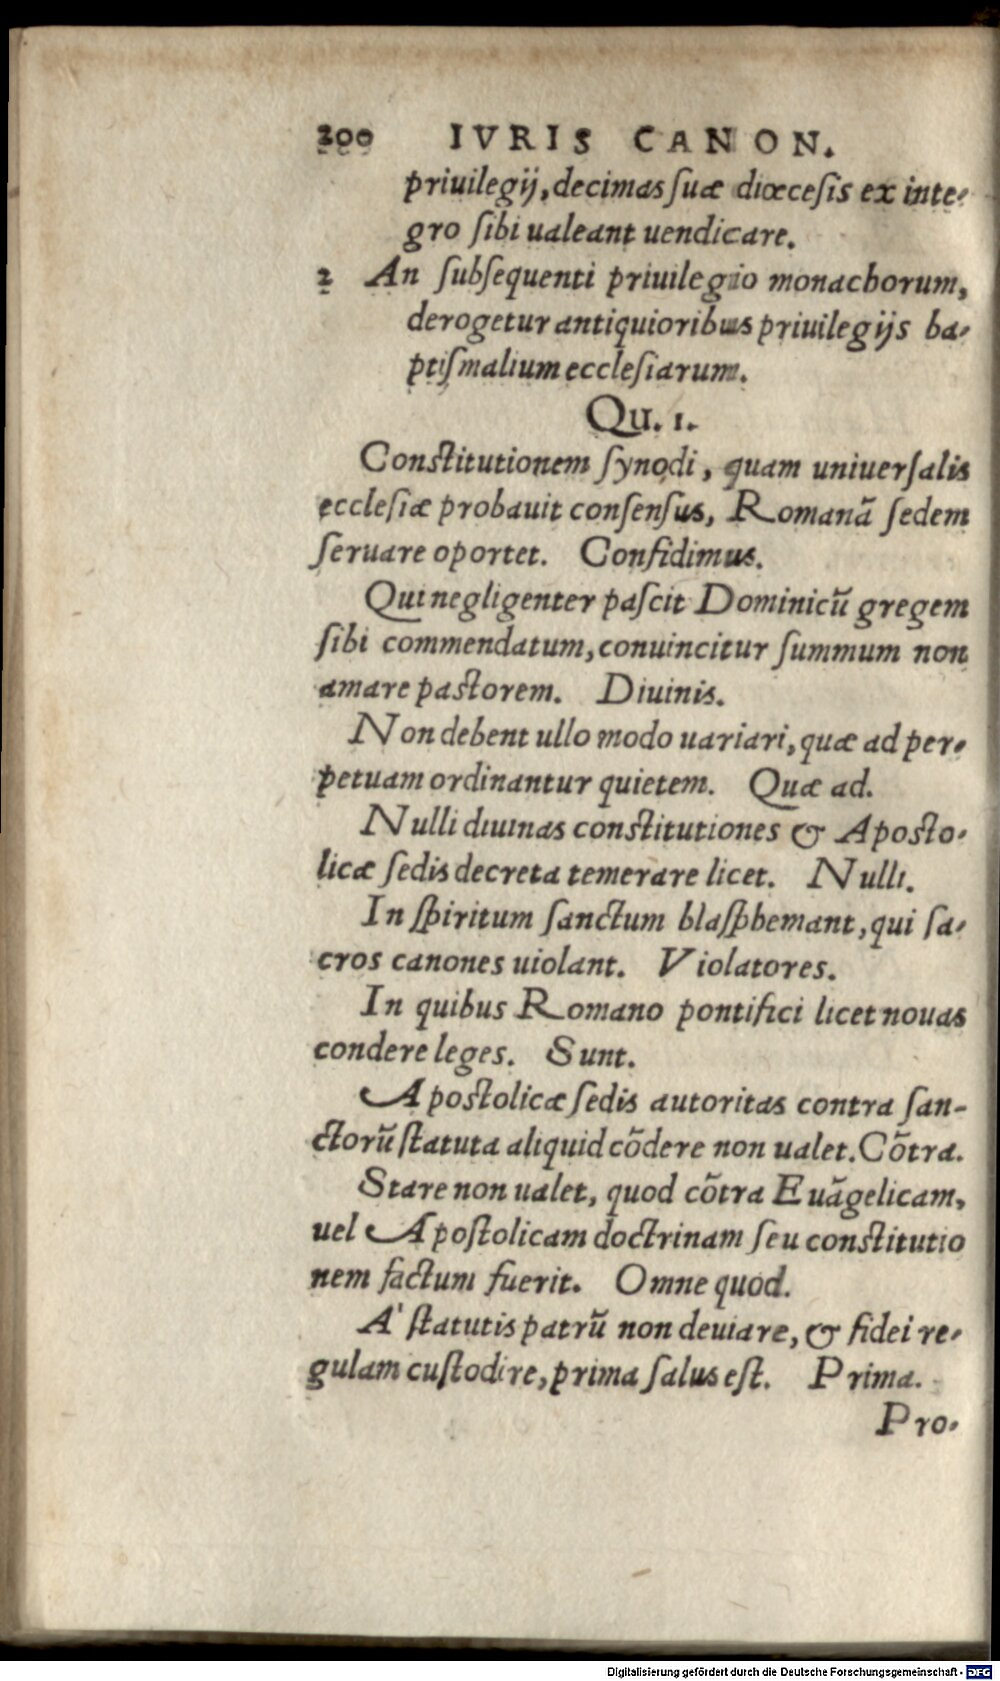 200 IVRIS CANON.
priuilegij, decimas suæ diœcesis ex inte-
gro sibi ualeant uendicare.
2 An subsequenti priuilegio monachorum,
derogetur antiquioribus priuilegijs ba-
ptismalium ecclesiarum.
Qu. 1.
Constitutionem synodi, quam uniuersalis
ecclesiæ probauit consensus, Romanā sedem
seruare oportet. Confidimus.
Qui negligenter pascit Dominicū gregem
sibi commendatum, conuincitur summum non
amare pastorem. Diuinis.
Non debent ullo modo uariari, quæ ad per-
petuam ordinantur quietem. Quæ ad.
Nulli diuinas constitutiones & Aposto-
licæ sedis decreta temerare licet. Nulli.
In spiritum sanctum blasphemant, qui sa-
cros canones uiolant. Violatores.
In quibus Romano pontifici licet nouas
condere leges. Sunt.
Apostolicæ sedis autoritas contra san-
ctorū statuta aliquid cōdere non ualet. Cōtra.
Stare non ualet, quod cōtra Euāgelicam,
uel Apostolicam doctrinam seu constitutio
nem factum fuerit. Omne quod.
A' statutis patrū non deuiare, & fidei re-
gulam custodire, prima salus est. Prima.
Pro-
Digitalisierung gefördert durch die Deutsche Forschungsgemeinschaft - DFG